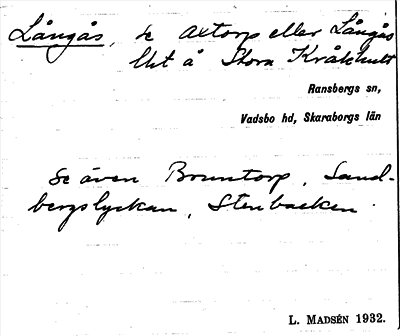 Långås, se Axtorp eller Långås
lht å Stora Kråkhult
Ransbergs sn,
Vadsbo hd, Skaraborgs län
Se även Bruntorp, Sand-
bergslyckan, Stenbacken.
L. MADSÉN 1932.